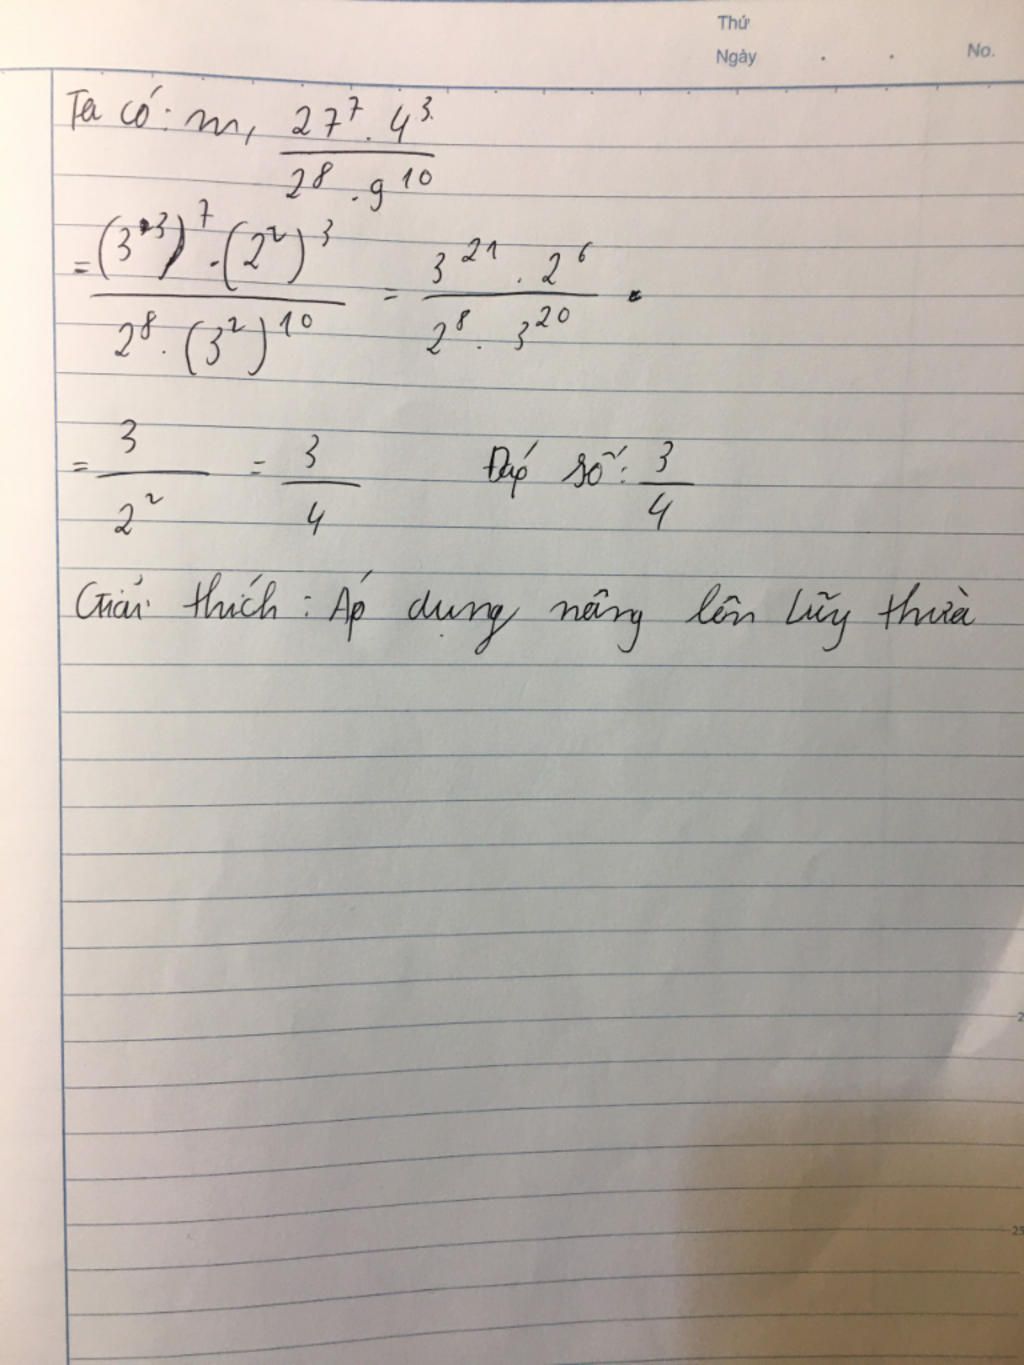 Thứ
Ngày . . No.
Ta có: m, 27⁷ . 4³ / 2⁸ . 9¹⁰
= (3³)⁷ . (2²)³ / 2⁸ . (3²)¹⁰ = 3²¹ . 2⁶ / 2⁸ . 3²⁰
= 3 / 2² = 3 / 4 Đáp số: 3 / 4
Giải thích: Áp dụng nâng lên lũy thừa
25